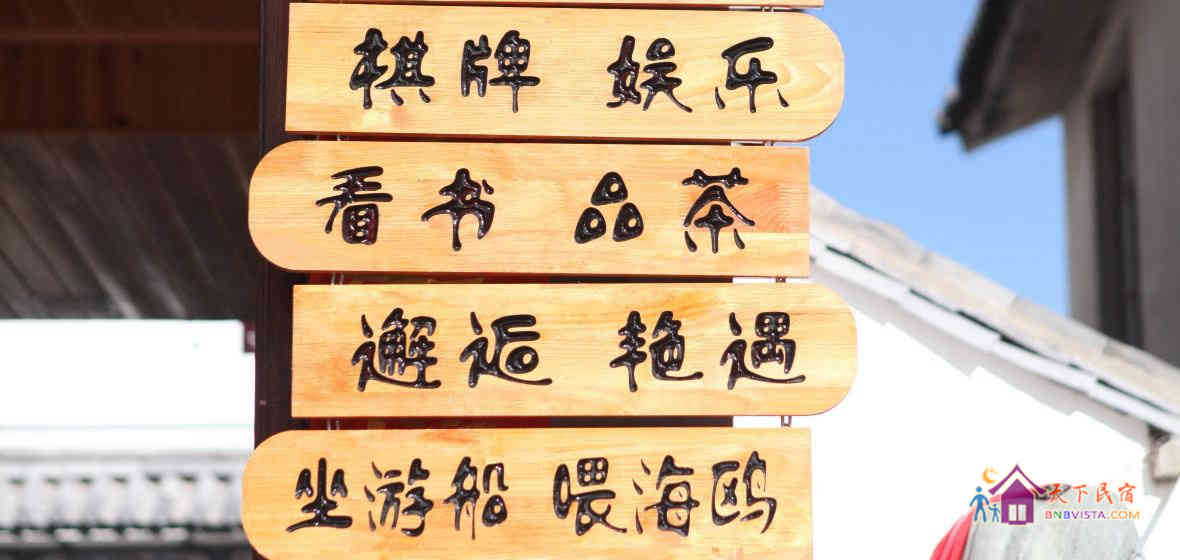 棋牌 娱乐
看书 品茶
邂逅 艳遇
坐游船 喂海鸥
天下民宿
BNBVISTA.COM